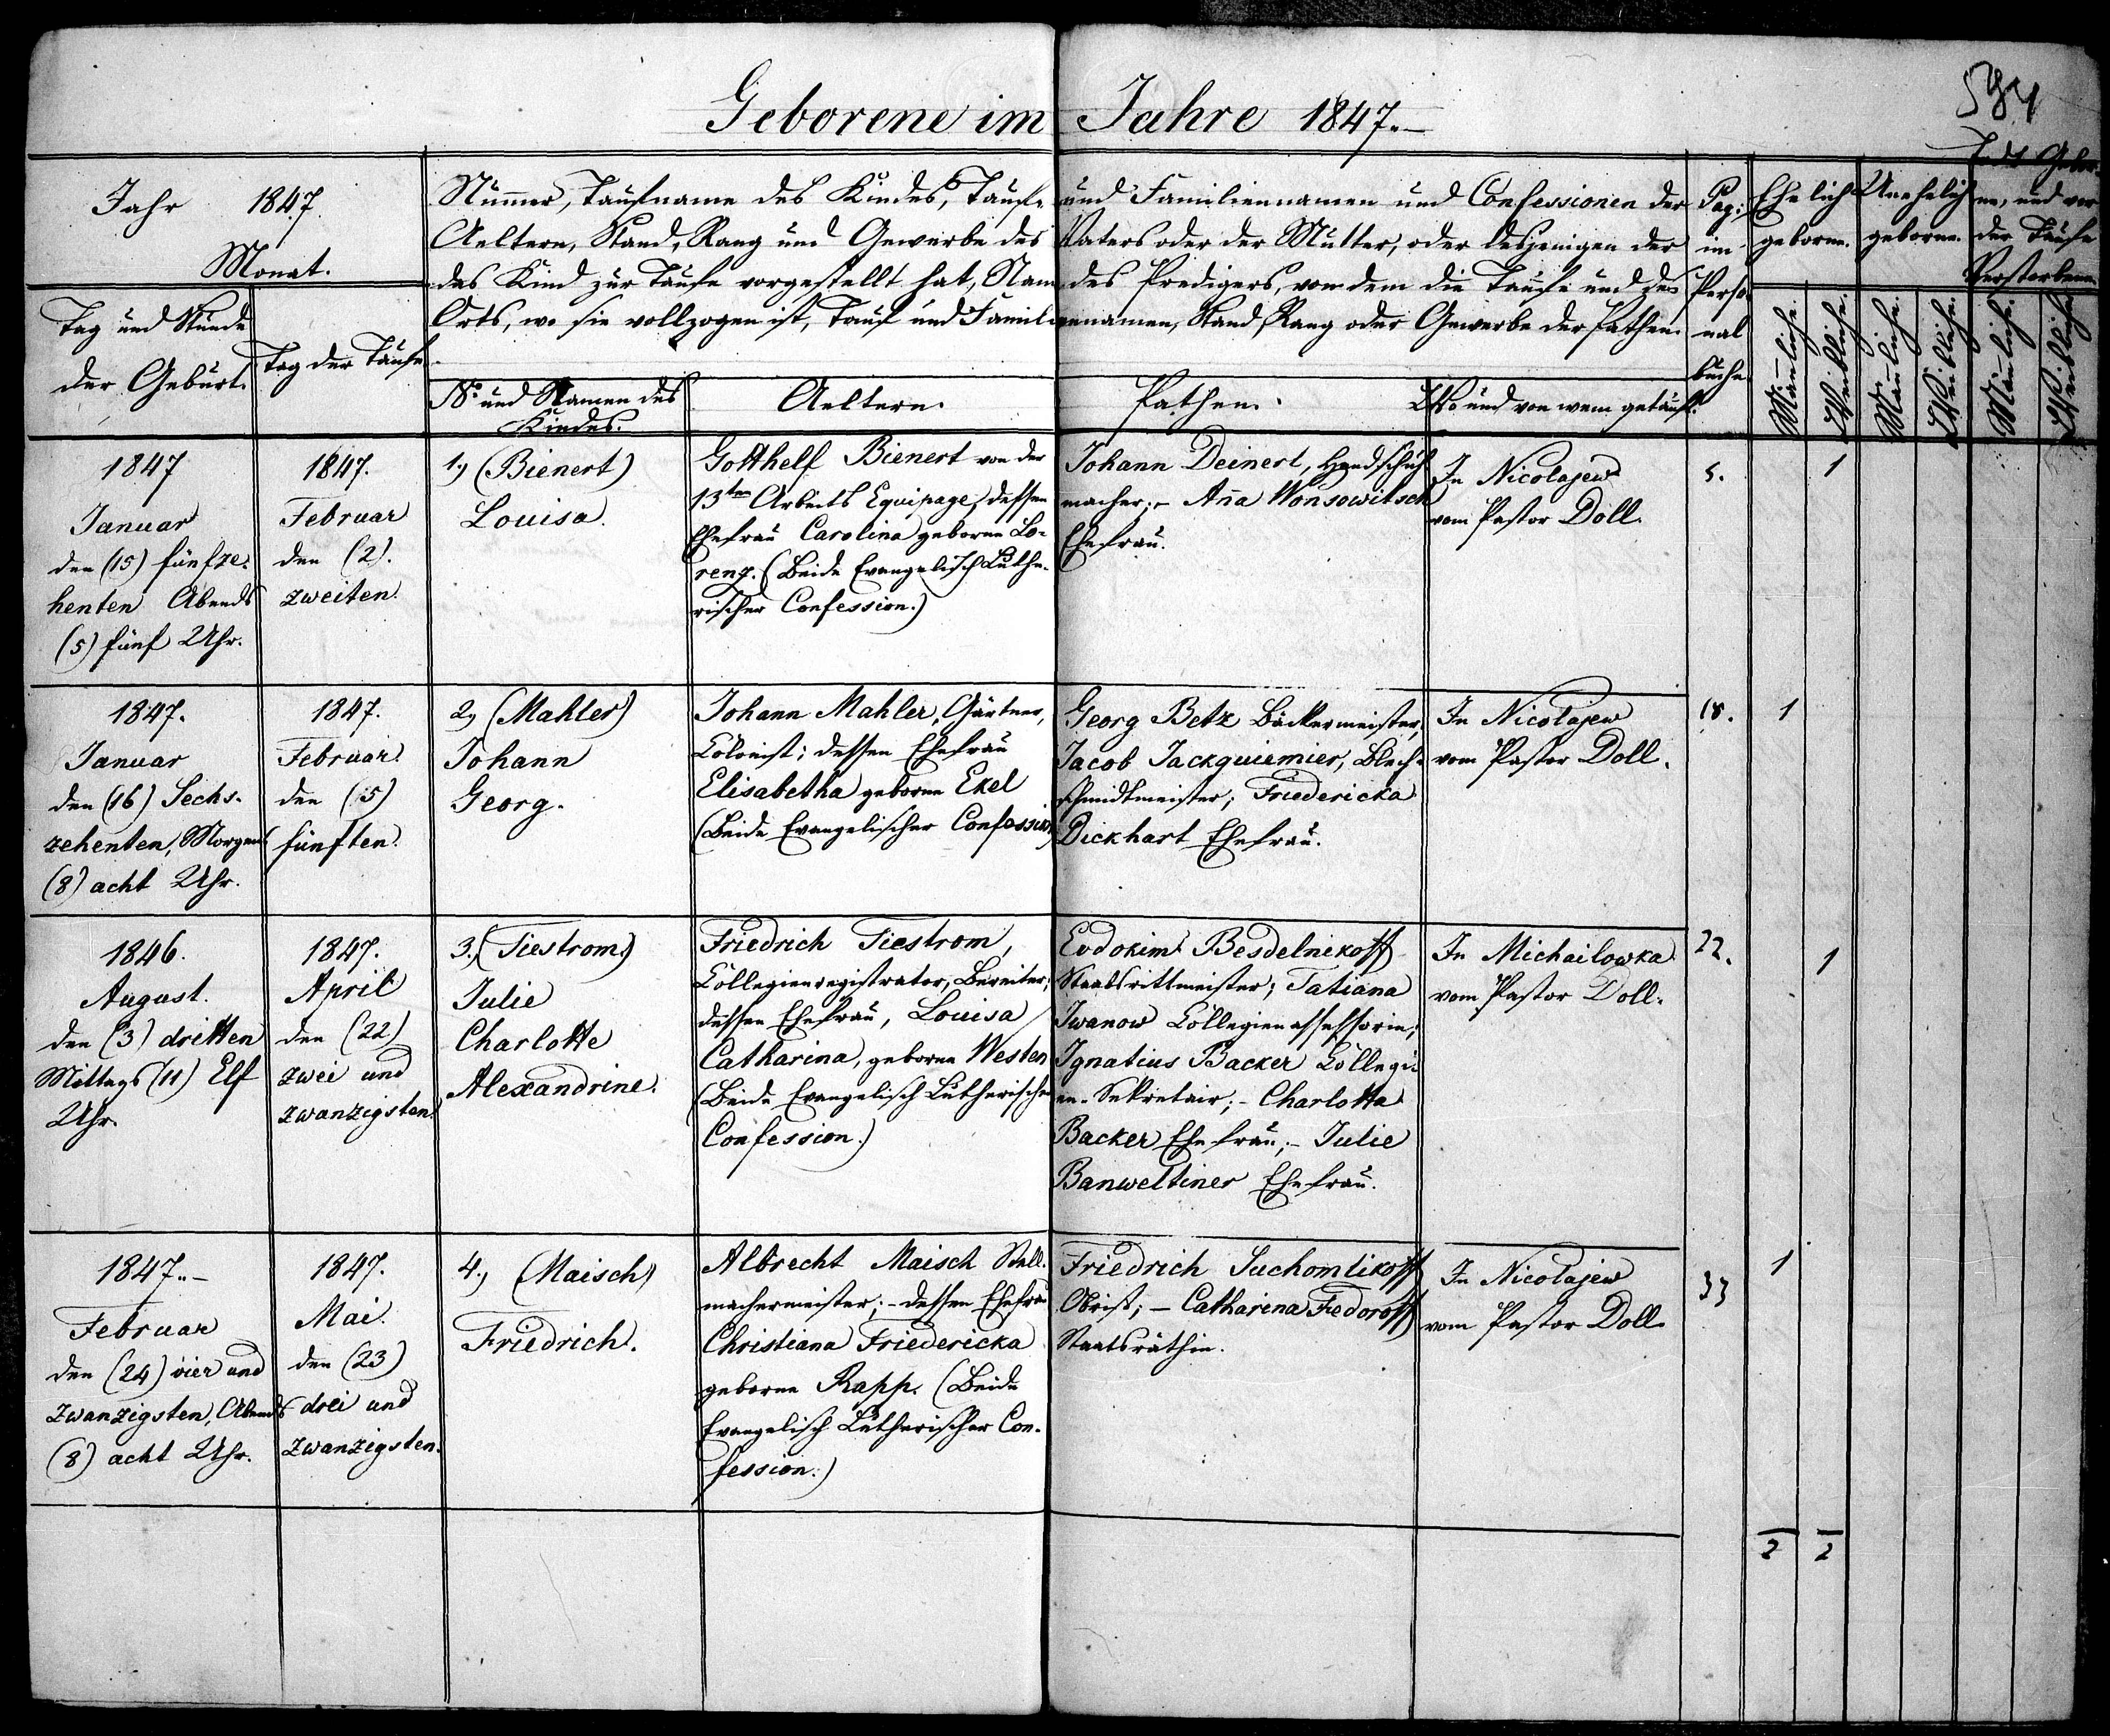 584
Geborene im Jahre 1847.
Jahr 1847.
Monat.
Tag und Stunde
der Geburt.
Tag der Taufe
Num̄er, Taufname des Kindes, Tauf- und Familiennamen und Confessionen der
Aeltern, Stand, Rang und Gewerbe des Vaters oder der Mutter, oder desjenigen der
das Kind zur Taufe vorgestellt hat, Nam des Predigers, von dem die Taufe und des
Orts, wo sie vollzogen ist, Tauf und Familiennamen, Stand, Rang oder Gewerbe der Pathen.
No. und Namen des
Kindes.
Aeltern.
Pathen.
Wo und von wem getauft.
Pag:
im
Perso
nal
buche
Ehelich
geborne.
Unehelich
geborne.
Todt Gebor
ne, und vor
der Taufe
Verstorbene
Män̄liche.
Weibliche.
Män̄liche.
Weibliche.
Män̄liche.
Weibliche.
1847
Januar
den (15) fünfze-
henten Abends
(5) fünf Uhr.
1847.
Februar
den (2).
zweiten.
1., (Bienert)
Louisa.
Gotthelf Bienert von der
13ten Arbeits Equipage, dessen
Ehefrau Carolina geborne Lo-
renz. (Beide Evangelisch Luthe-
rischer Confession.)
Johann Deinert, Handschuh
macher; - An̄a Wonsowitsch
Ehefrau.
In Nicolajew
vom Pastor Doll.
5.
1
1847.
Januar
den (16) Sechs-
zehenten, Morgens
(8) acht Uhr.
1847.
Februar.
den (5)
fünften.
2., (Mahler)
Johann
Georg.
Johann Mahler, Gärtner,
Colonist; dessen Ehefrau
Elisabetha geborne Exel
(Beide Evangelischer Confession)
Georg Betz Bäckermeister,
Jacob Jackquiemier, Blech-
schmidtmeister; Friedericka
Dickhart Ehefrau.
In Nicolajew
vom Pastor Doll.
18.
1
1846.
August.
den (3) dritten
Mittags (11) Elf
Uhr.
1847.
April
den (22)
zwei und
zwanzigsten.
3., (Tiestrom.)
Julie
Charlotte
Alexandrine.
Friedrich Tiestrom,
Collegienregistrator, Bereiter;
dessen Ehefrau, Louisa
Catharina, geborne Westen
(Beide Evangelisch Lutherischer
Confession.)
Evdokim Besdelnikoff
Staabsrittmeister; Tatiana
Iwanow Collegienassessorin;
Ignatius Backer Collegi-
en-Sekretair; - Charlotta
Backer Ehefrau; - Julie
Banweltiner Ehefrau.
In Michailowka
vom Pastor Doll.
22.
1
1847.-
Februar
den (24) vier und
zwanzigsten, Abends
(8) acht Uhr.
1847.
Mai.
den (23)
drei und
zwanzigsten.
4., (Maisch)
Friedrich.
Albrecht Maisch Stell-
machermeister; - dessen Ehefrau
Christiana Friedericka
geborne Rapp. (Beide
Evangelisch Lutherischer Con-
fession.)
Friedrich Suchomlikoff
Obrist; - Catharina Fiedoroff
Staatsräthin.
In Nicolajew
vom Pastor Doll.
33
1
2
2